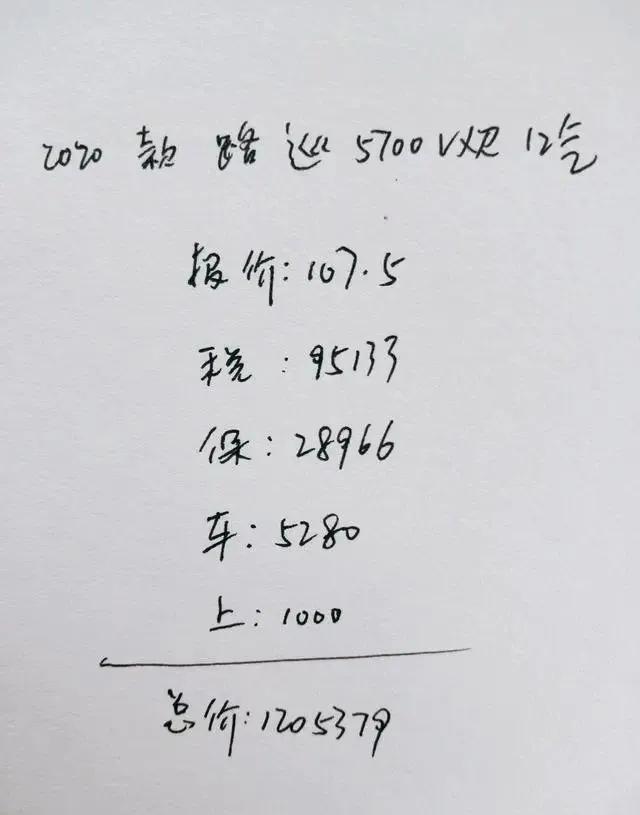 2020 款 路巡 5700 VXR 12气
报价:107.5
税:95133
保:28966
车:5280
上:1000
总价:1205379